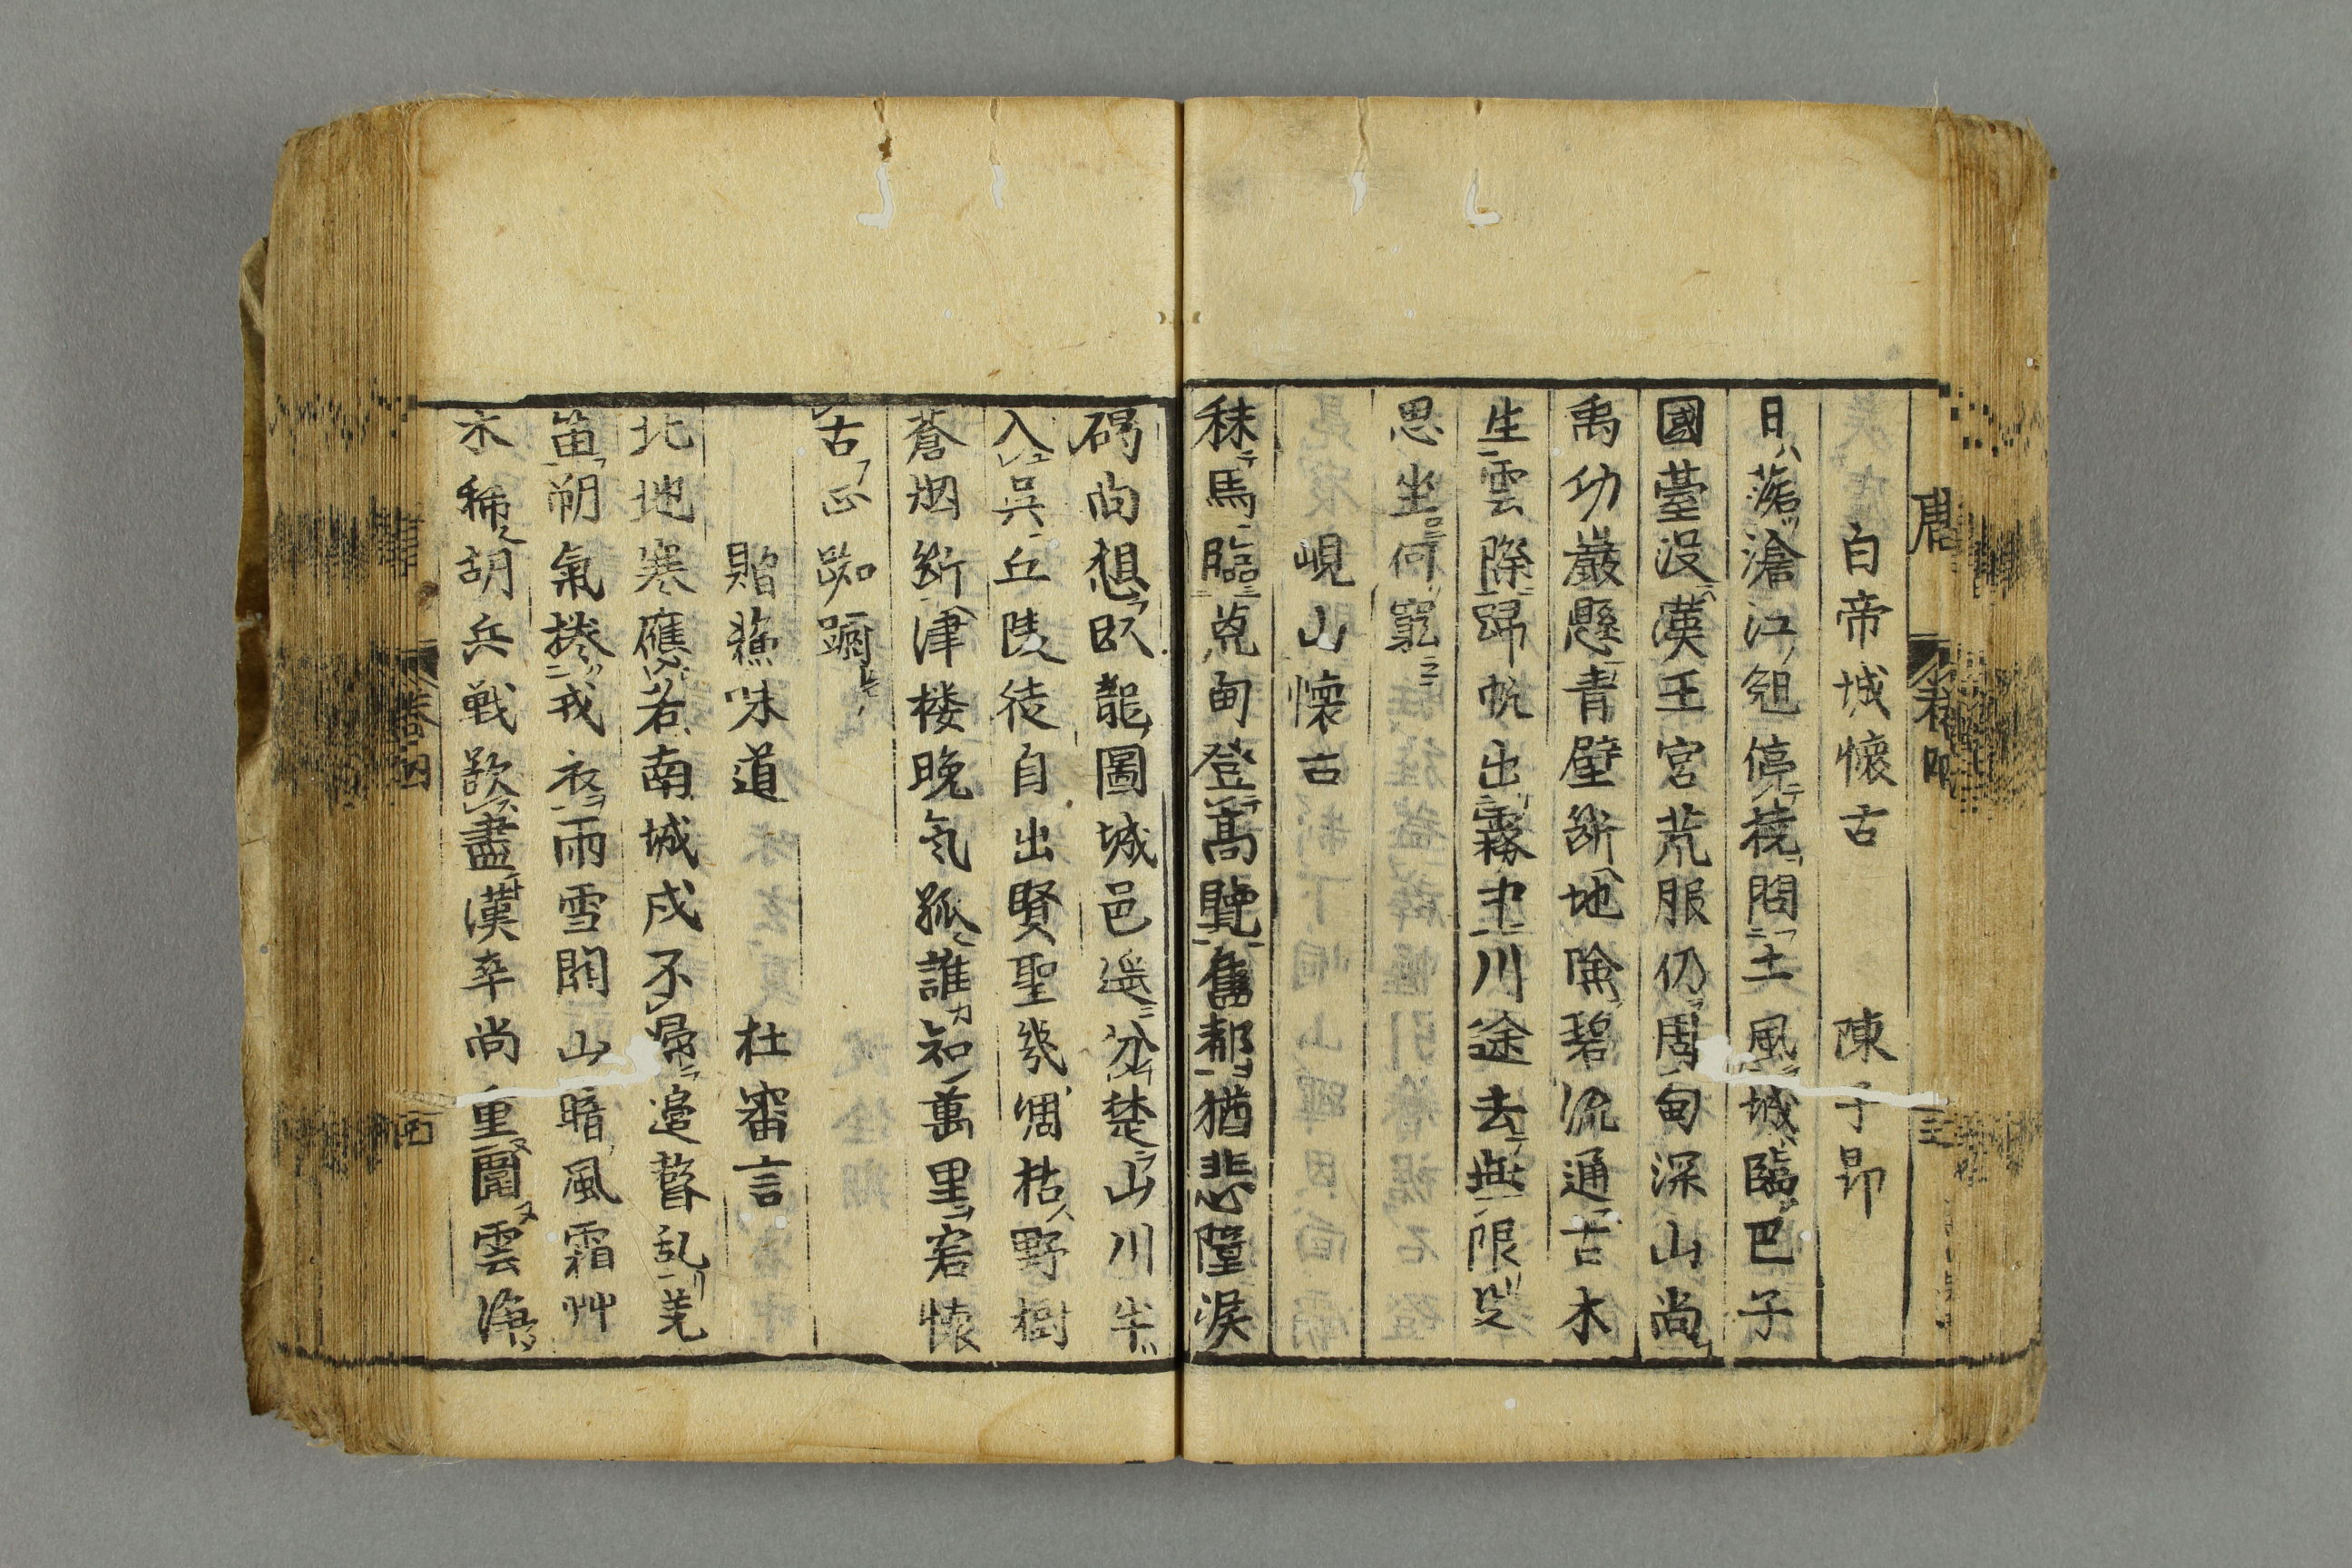 白帝城懷古　陳子昂
日落滄江𨚫停橈問土風城臨巴子
國臺没漢王宮荒服仍周甸深山尚
禹功巖懸青壁斷地險碧流通古木
生雲際歸帆出霧中川途去無限客
思坐何窮
峴山懷古
秣馬臨荒甸登高覽舊都猶悲墮淚
碣尚想臥龍圖城邑遥分楚山川半
入呉丘陵徒自出賢聖幾凋枯野樹
蒼烟斷津楼晚氣孤誰知萬里客懷
古正踟蹰
贈蘓味道　杜審言
北地寒應苦南城戍不歸邉聲乱羌
笛朔氣捲戎衣雨雪関山暗風霜艸
木稀胡兵戦欲盡漢卒尚重圍雲海
唐
卷四
卷四
四